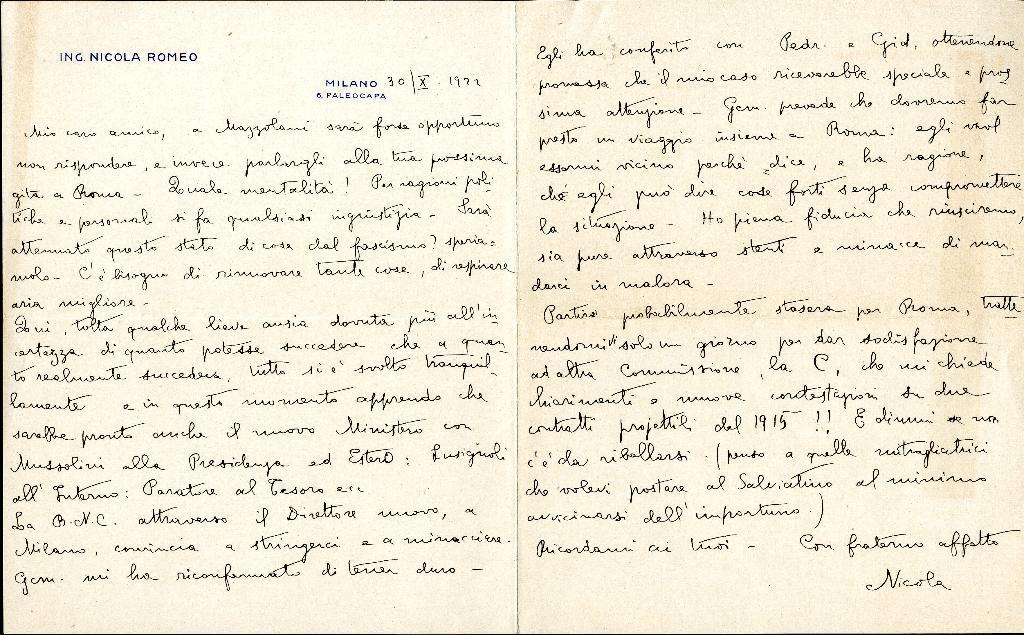 ING. NICOLA ROMEO
MILANO 30/X. 1922
6. PALEOCAPA
Mio caro amico, a Mazzolani sarà forse opportuno
non rispondere, e invece parlargli alla tua prossima
gita a Roma - Quale mentalità! Per ragioni poli
tiche e personali si fa qualsiasi ingiustizia - Sarà
attenuato questo stato di cose dal fascismo? speria=
molo - C'è bisogno di rinnovare tante cose, di respirare
aria migliore -
Qui, tolta qualche lieve ansia dovuta più all'in
certezza di quanto potesse succedere che a quan-
to realmente succedeva, tutto si è svolto tranquil-
lamente e in questo momento apprendo che
sarebbe pronto anche il nuovo Ministero con
Mussolini alla Presidenza ed Esteri: Lusignoli
all'Interno: Paratore al Tesoro ecc
La B.N.C. attraverso il Direttore nuovo, a
Milano, comincia a stringerci e a minacciare.
Gcm. mi ha riconfermato di tener duro -
Egli ha conferito con Pedr. e Gid. ottenendone
promessa che il mio caso riceverebbe speciale e pros
sima attenzione - Gcm. prevede che dovremo far
presto un viaggio insieme a Roma: egli vuol
essermi vicino perché, dice, e ha ragione,
ché egli può dire cose forti senza compromettere
la situazione - Ho piena fiducia che riusciremo,
sia pure attraverso stenti e minacce di man-
darci in malora -
Partirò probabilmente stasera per Roma, tratte
nendomivi solo un giorno per dar sodisfazione
ad altra Commissione, la C, che mi chiede
chiarimenti e muove contestazioni su due
contratti proiettili del 1915 !! E dimmi se non
c'è da ribellarsi. (penso a quelle mitragliatrici
che volevi postare al Salviatino al minimo
avvicinarsi dell'importuno.)
Ricordami ai tuoi - Con fraterno affetto
Nicola